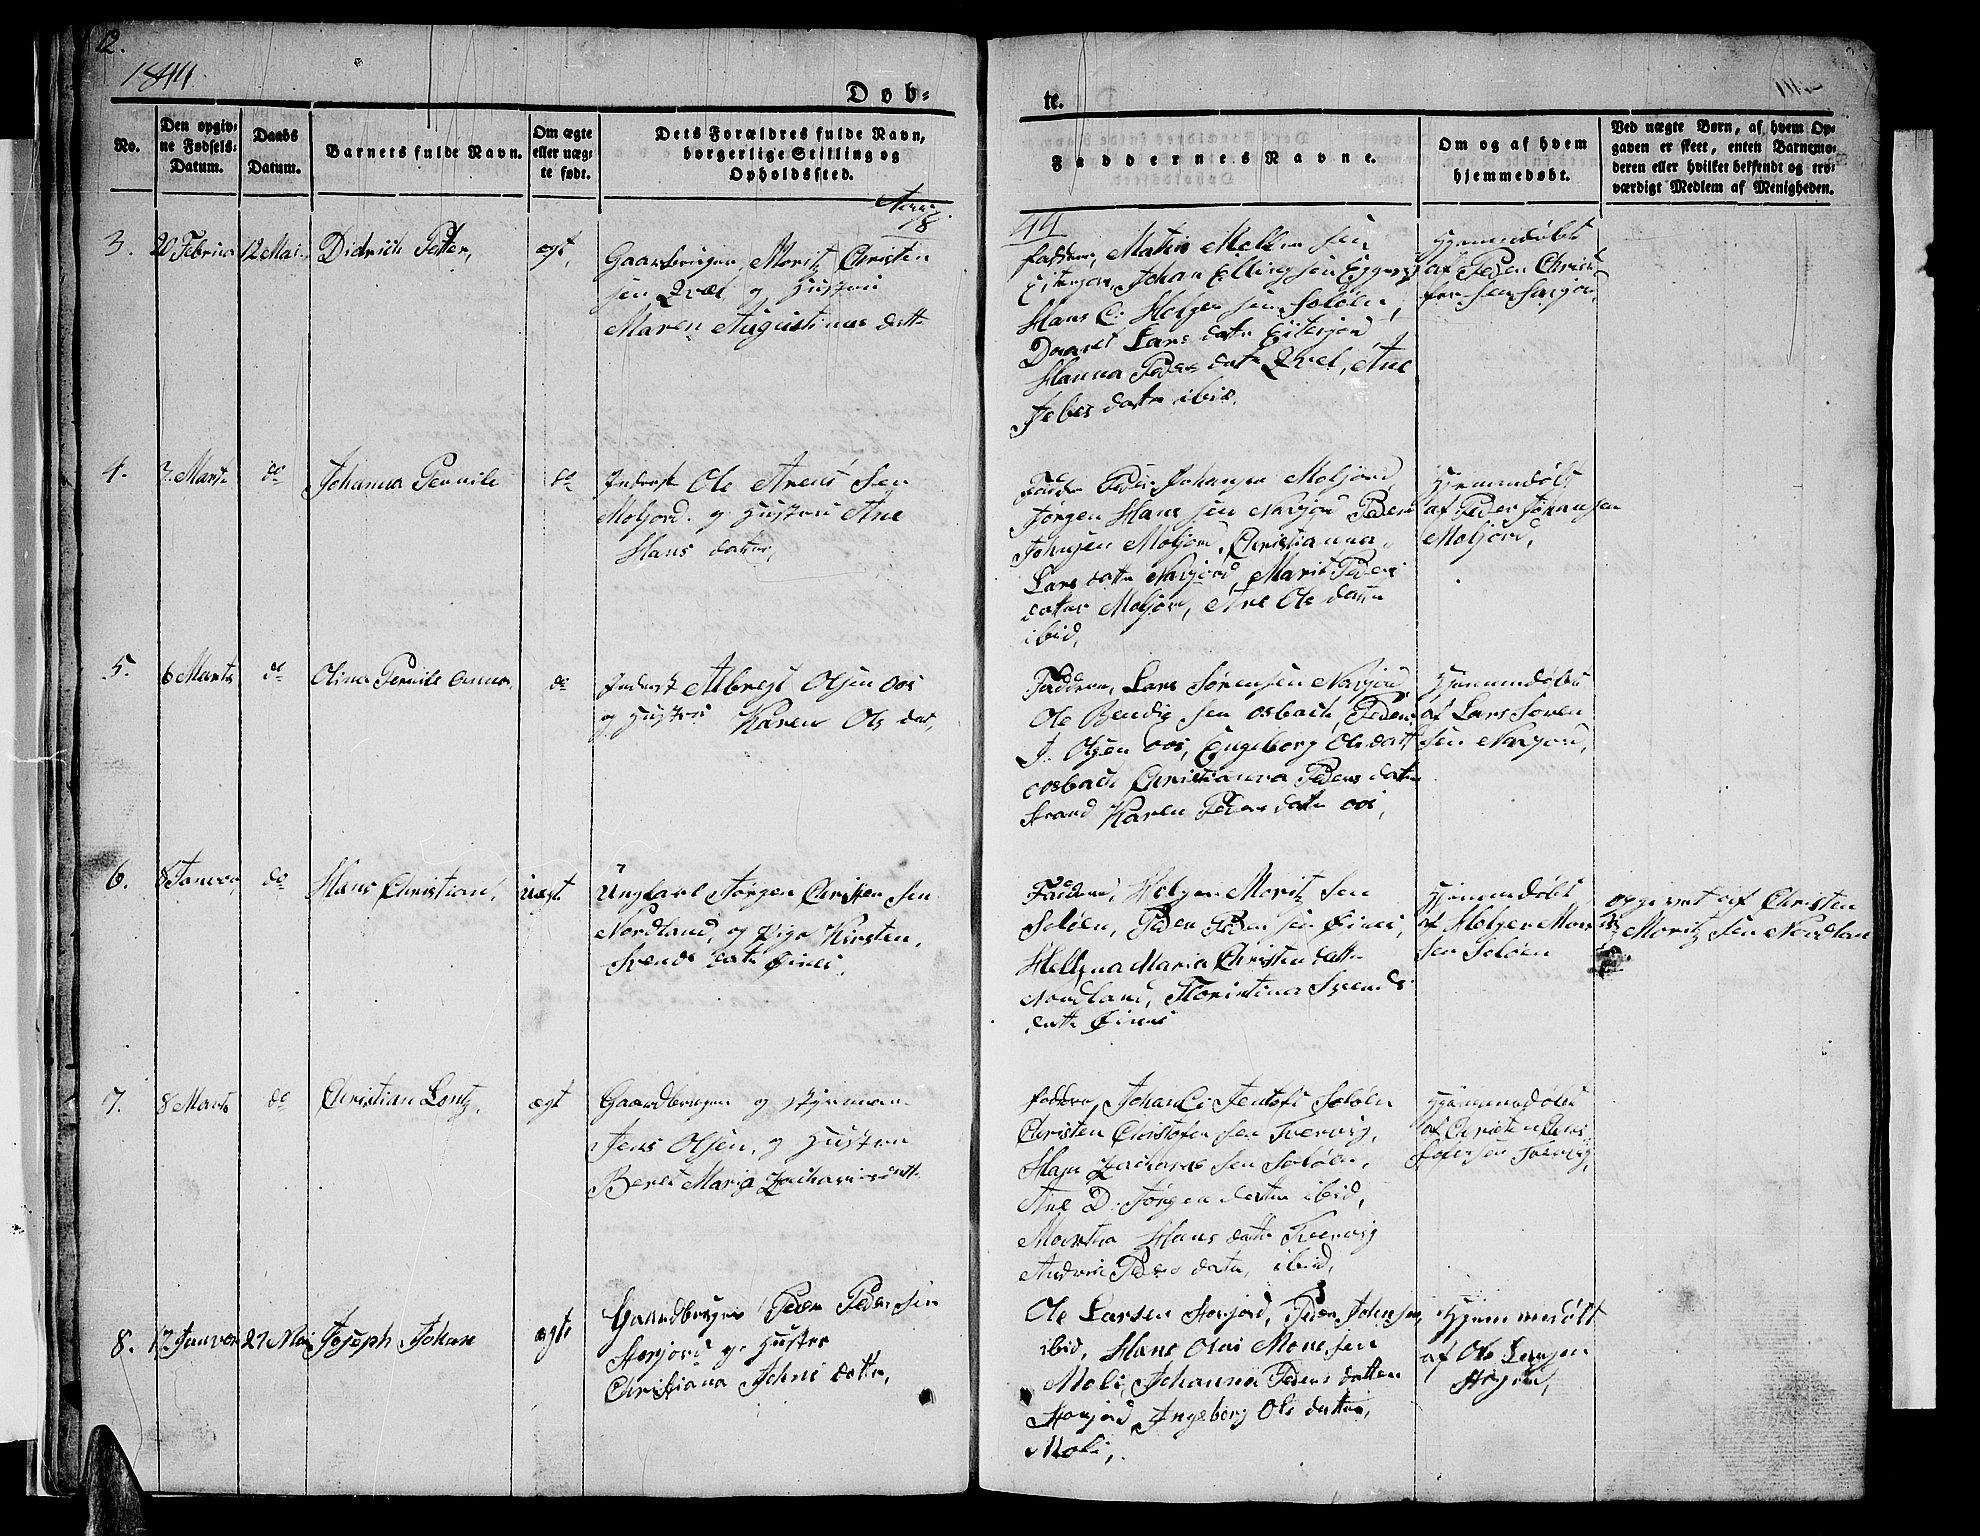 12.
1844.
Døb-
te.
No.
Den opgiv-
ne Fødsels-
Datum.
Daabs
Datum.
Barnets fulde Navn.
Om ægte
eller uæg-
te født.
Dets Forældres fulde Navn,
borgerlige Stilling og
Opholdssted.
Faddernes Navne.
Om og af hvem
hjemmedøbt.
Ved uægte Børn, af hvem Op-
gaven er skeet, enten Barnemo-
deren eller hvilket bekjendt og tro-
værdigt Medlem af Menigheden.
18
44
3.
20 Februar
12 Mai
Didrich Petter,
ægt,
Gaardbruger Moritz Christen
sen Qvæl og Hustru
Maren Augustinus datt
Johan Ellingsen
Hans C. Holgersen Soløen,
Lars datr
Hanna Peders datr Qvel, Ane
Jebes datr ibid.
Hjemmedøbt
af Peder Christ
4.
7 Marts
do
Johanna Pernile
do
Inderst Ole Arens sen
Moljord og Hustru Ane
Hans datter,
Peder Johansen Moljord,
Jørgen Hans sen Naxjord Peder
Johnsen Moljord, Christianna
Lars datr Naxjord, Marit Peders
datter Moljord, Ane Ols datter
ibid,
Hjemmedøbt
af Peder Johansen
Moljord,
5.
6 Marts
do
Olina Pernile Anna
do
Inderst Albregt Olsen oos
og Hustru Karen Ols dat,
Faddere, Lars Sørensen Naxjord
Ole Bendix sen osbach, Peder
J. Olsen oos, Engeborg Ols datt
osbach Christianna Peders datr
Strand Karen Peders datr oos,
Hjemmedøbt
af Lars Søren
sen Naxjord,
6.
8 Januar
do
Hans Christian,
uægt
Ungkarl Jørgen Christensen
Nordland, og Pige Kirsten
Svends datr Øines,
Faddere, Holger Moritz sen
Soløen, Peder Peder sen Øines,
Hellena Maria Christen datt
Nordland, Floristina Svends
datt Øines
Hjemmedøbt
af Holger Moritz
sen Soløen
opgivet af Christen
Moritz sen Nordlan
7.
8 Marts
do
Christian Lontz,
ægt
Gaardbruger og Styrman
Jens Olsen, og Hustru
Beret Maria Zachariasdatt
Faddere, Johan C. Jentoft Soløen
Christen Christofer sen Tvervig,
Hans Zacharias sen Soløen,
Ane D. Jørgen datter ibid,
Martha Hans datt Tvervig
Peders datr, ibid,
Hjemmedøbt
af Christen Chris
tofersen Tvervig,
8.
17 Januar
27 Mai
Joseph Johan
ægte
Gaardbruger Peder Pedersen
Storjord og Hustro
Christiana Johns datter,
Ole Larsen Storjord, Peder Johnsen,
ibid, Hans Olai Monsen
Moli, Johanna Peders datter
Storjord Ingeborg Ols datter,
Moli,
Hjemmedøbt
af Ole Larsen
Storjord,